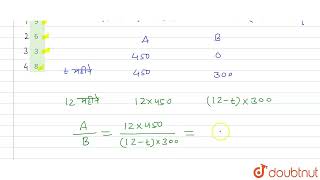 A B
450 0
t महीने 450 300
12 महीने 12×450 (12-t)×300
A/B = 12×450/(12-t)×300 =
doubtnut